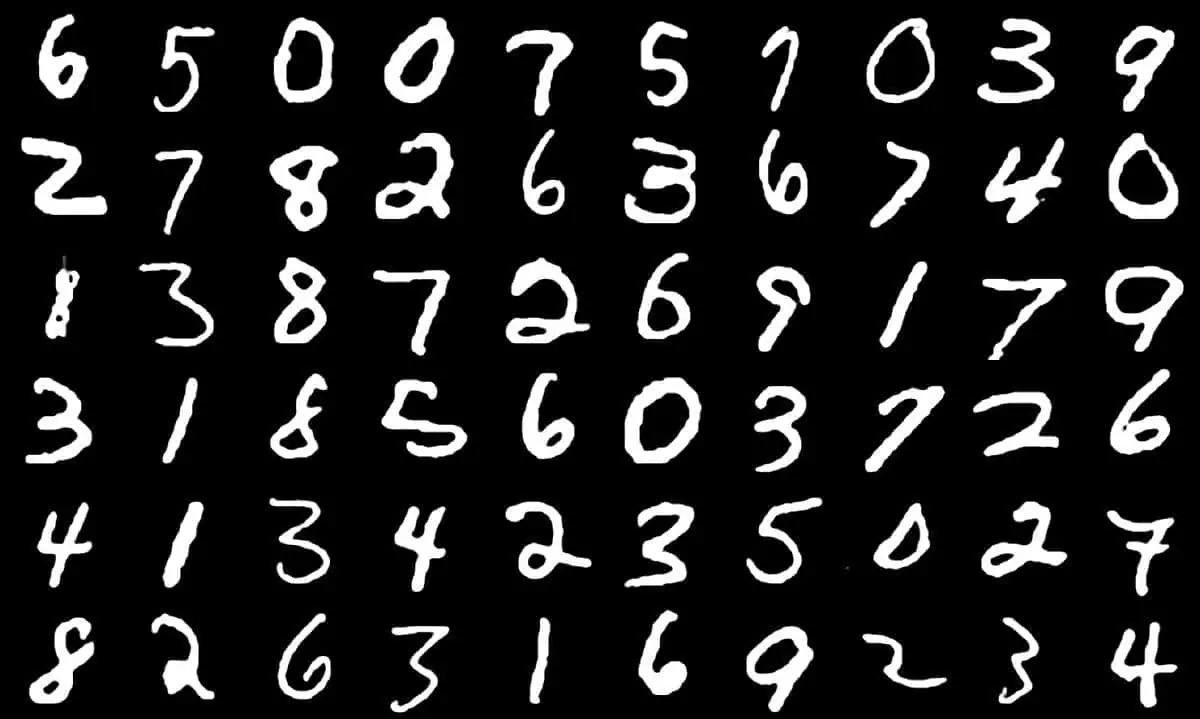 6 5 0 0 7 5 1 0 3 9
2 7 8 2 6 3 6 7 4 0
8 3 8 7 2 6 9 1 7 9
3 1 8 5 6 0 3 7 2 6
4 1 3 4 2 3 5 0 2 7
8 2 6 3 1 6 9 2 3 4